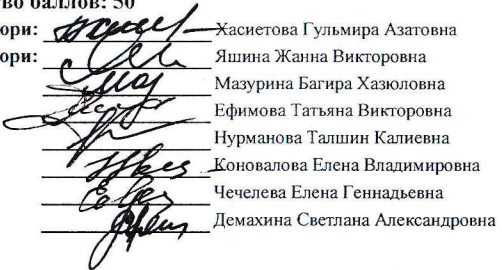 во баллов: 50
юри: Хасиетова Гульмира Азатовна
юри: Яшина Жанна Викторовна
Мазурина Багира Хазюловна
Ефимова Татьяна Викторовна
Нурманова Талшин Калиевна
Коновалова Елена Владимировна
Чечелева Елена Геннадьевна
Демахина Светлана Александровна